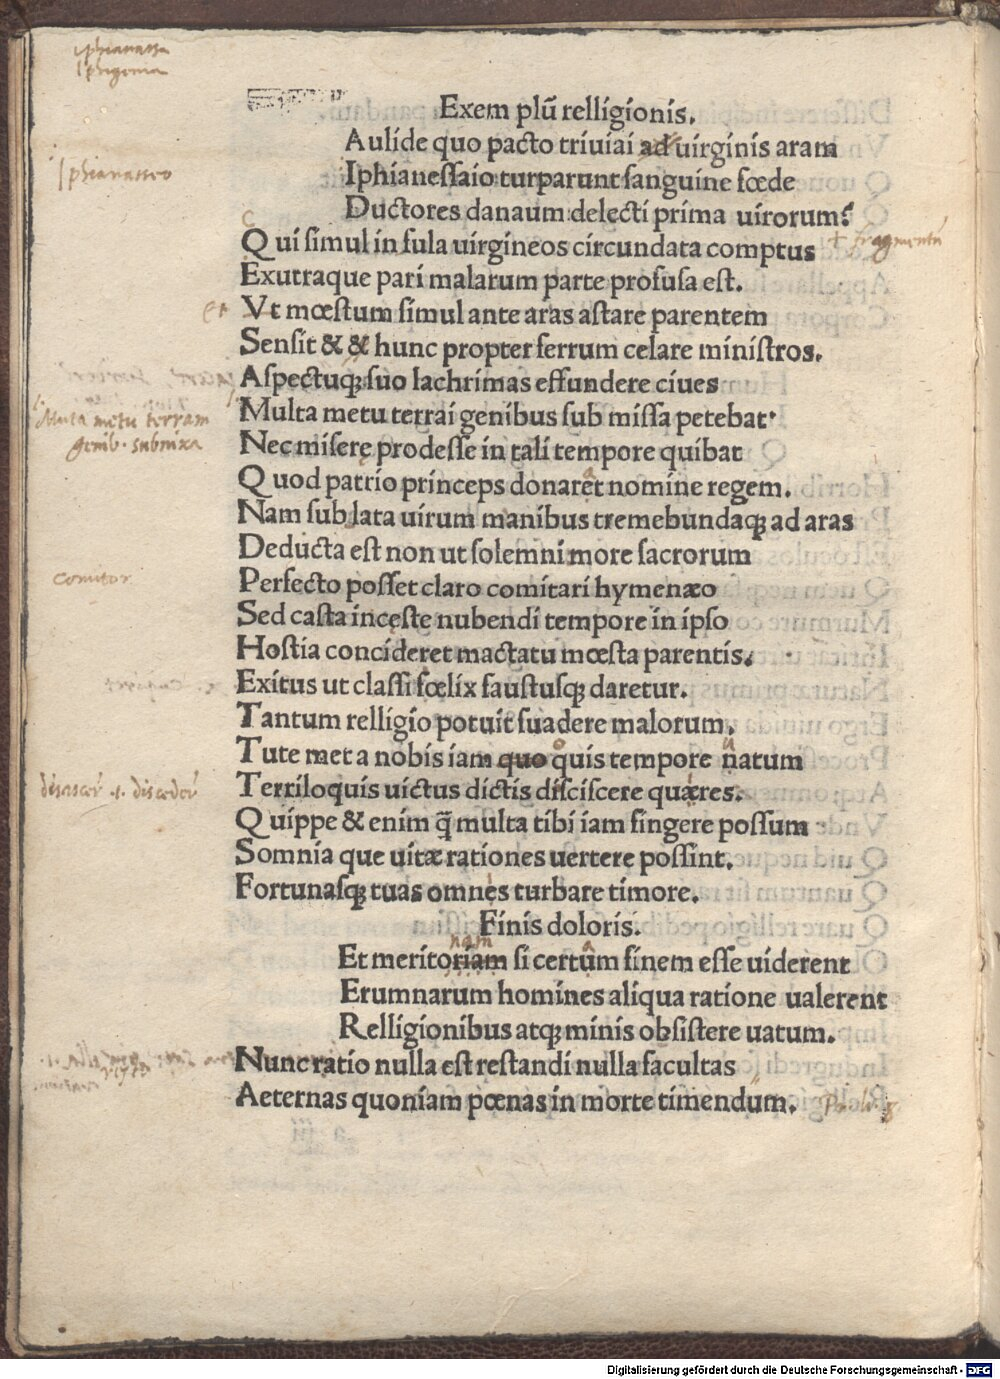 Iphianassa
Iphigenia
Exem plū relligionis.
Aulide quo pacto triuiai ad uirginis aram
Iphianasseo
Iphianessaio turparunt sanguine fœde
Ductores danaum delecti prima uirorum:
C
Qui simul in fula uirgineos circundata comptus
+ fragmentū
Exutraque pari malarum parte profusa est.
et
Vt mœstum simul ante aras astare parentem
Sensit & & hunc propter ferrum celare ministros.
Aspectuqꝫ suo lachrimas effundere ciues
Multa metu terrai genibus sub missa petebat·
Muta metu terram
genib. submixa
Nec miserę prodesse in tali tempore quibat
a
Quod patrio princeps donaret nomine regem.
Nam sub lata uirum manibus tremebundaqꝫ ad aras
Deducta est non ut solemni more sacrorum
comitor
Perfecto posset claro comitari hymenæo
Sed casta inceste nubendi tempore in ipso
Hostia concideret mactatu mœsta parentis.
Exitus ut classi fœlix faustusqꝫ daretur.
Tantum relligio potuit suadere malorum.
o
u
Tute met a nobis iam quo quis tempore natum
Terriloquis uictus dictis disciscere quæres.
Quippe & enim q̄ multa tibi iam fingere possum
Somnia que uitæ rationes uertere possint.
Fortunasqꝫ tuas omnes turbare timore.
Finis doloris.
nam
a
Et meritoriam si certum finem esse uiderent
Erumnarum homines aliqua ratione ualerent
Relligionibus atqꝫ minis obsistere uatum.
Nunc ratio nulla est restandi nulla facultas
Aeternas quoniam pœnas in morte timendum.
Digitalisierung gefördert durch die Deutsche Forschungsgemeinschaft - DFG